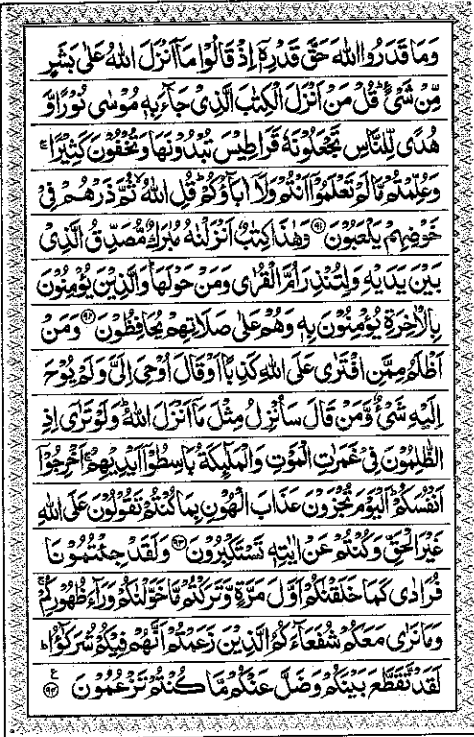 وَمَا قَدَرُوا اللّٰهَ حَقَّ قَدْرِهٖۤ اِذْ قَالُوْا مَاۤ اَنْزَلَ اللّٰهُ عَلٰى بَشَرٍ
مِّنْ شَیْءٍؕ قُلْ مَنْ اَنْزَلَ الْكِتٰبَ الَّذِیْ جَآءَ بِهٖ مُوْسٰى نُوْرًا وَّ
هُدًى لِّلنَّاسِ تَجْعَلُوْنَهٗ قَرَاطِیْسَ تُبْدُوْنَهَا وَتُخْفُوْنَ كَثِیْرًاۚ
وَعُلِّمْتُمْ مَّا لَمْ تَعْلَمُوْۤا اَنْتُمْ وَلَاۤ اٰبَآؤُكُمْؕ قُلِ اللّٰهُۙ ثُمَّ ذَرْهُمْ فِیْ
خَوْضِهِمْ یَلْعَبُوْنَ ۝۹۱ وَهٰذَا كِتٰبٌ اَنْزَلْنٰهُ مُبٰرَكٌ مُّصَدِّقُ الَّذِیْ
بَیْنَ یَدَیْهِ وَلِتُنْذِرَ اُمَّ الْقُرٰى وَمَنْ حَوْلَهَاؕ وَالَّذِیْنَ یُؤْمِنُوْنَ
بِالْاٰخِرَةِ یُؤْمِنُوْنَ بِهٖ وَهُمْ عَلٰى صَلَاتِهِمْ یُحَافِظُوْنَ ۝۹۲ وَمَنْ
اَظْلَمُ مِمَّنِ افْتَرٰى عَلَى اللّٰهِ كَذِبًا اَوْ قَالَ اُوْحِیَ اِلَیَّ وَلَمْ یُوْحَ
اِلَیْهِ شَیْءٌ وَّمَنْ قَالَ سَاُنْزِلُ مِثْلَ مَاۤ اَنْزَلَ اللّٰهُؕ وَلَوْ تَرٰۤى اِذِ
الظّٰلِمُوْنَ فِیْ غَمَرٰتِ الْمَوْتِ وَالْمَلٰٓىِٕكَةُ بَاسِطُوْۤا اَیْدِیْهِمْۚ اَخْرِجُوْۤا
اَنْفُسَكُمْؕ اَلْیَوْمَ تُجْزَوْنَ عَذَابَ الْهُوْنِ بِمَا كُنْتُمْ تَقُوْلُوْنَ عَلَى اللّٰهِ
غَیْرَ الْحَقِّ وَكُنْتُمْ عَنْ اٰیٰتِهٖ تَسْتَكْبِرُوْنَ ۝۹۳ وَلَقَدْ جِئْتُمُوْنَا
فُرَادٰى كَمَا خَلَقْنٰكُمْ اَوَّلَ مَرَّةٍ وَّتَرَكْتُمْ مَّا خَوَّلْنٰكُمْ وَرَآءَ ظُهُوْرِكُمْۚ
وَمَا نَرٰى مَعَكُمْ شُفَعَآءَكُمُ الَّذِیْنَ زَعَمْتُمْ اَنَّهُمْ فِیْكُمْ شُرَكٰٓؤُاؕ
لَقَدْ تَّقَطَّعَ بَیْنَكُمْ وَضَلَّ عَنْكُمْ مَّا كُنْتُمْ تَزْعُمُوْنَ ۝۹۴ ع